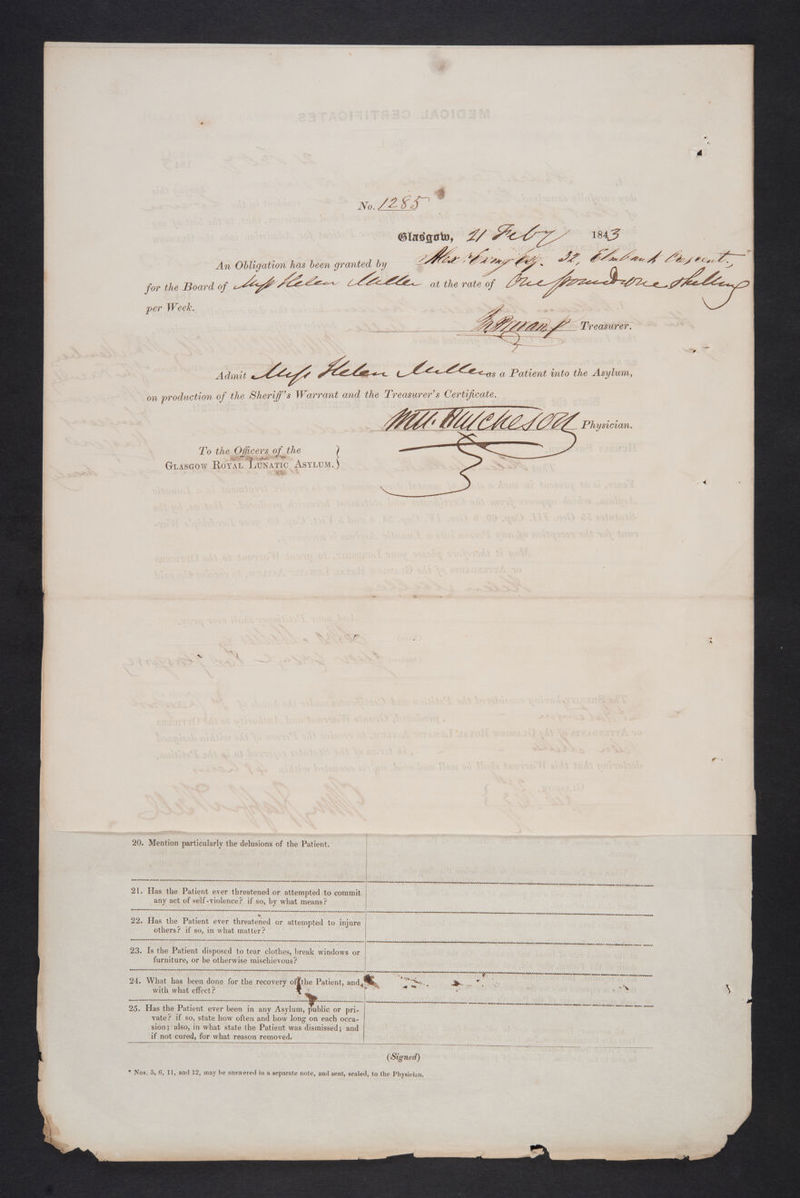 No. 1285
Glasgow, 21 Feby 1843
An Obligation has been granted by 32, Elmbank Crescent,
for the Board of Miss Helen Miller at the rate of One pound one shilling
per Week.
Treasurer.
Admit Miss Helen Miller as a Patient into the Asylum,
on production of the Sheriff's Warrant and the Treasurer's Certificate.
Wm. Hutcheson Physician.
To the Officers of the
GLASGOW ROYAL LUNATIC ASYLUM.
20. Mention particularly the delusions of the Patient.
21. Has the Patient ever threatened or attempted to commit
any act of self-violence? if so, by what means?
22. Has the Patient ever threatened or attempted to injure
others? if so, in what matter?
23. Is the Patient disposed to tear clothes, break windows or
furniture, or be otherwise mischievous?
24. What has been done for the recovery of the Patient, and,
with what effect?
25. Has the Patient ever been in any Asylum, public or pri-
vate? if so, state how often and how long on each occa-
sion; also, in what state the Patient was dismissed; and
if not cured, for what reason removed.
(Signed)
* Nos. 5, 6, 11, and 12, may be answered in a separate note, and sent, sealed, to the Physician.